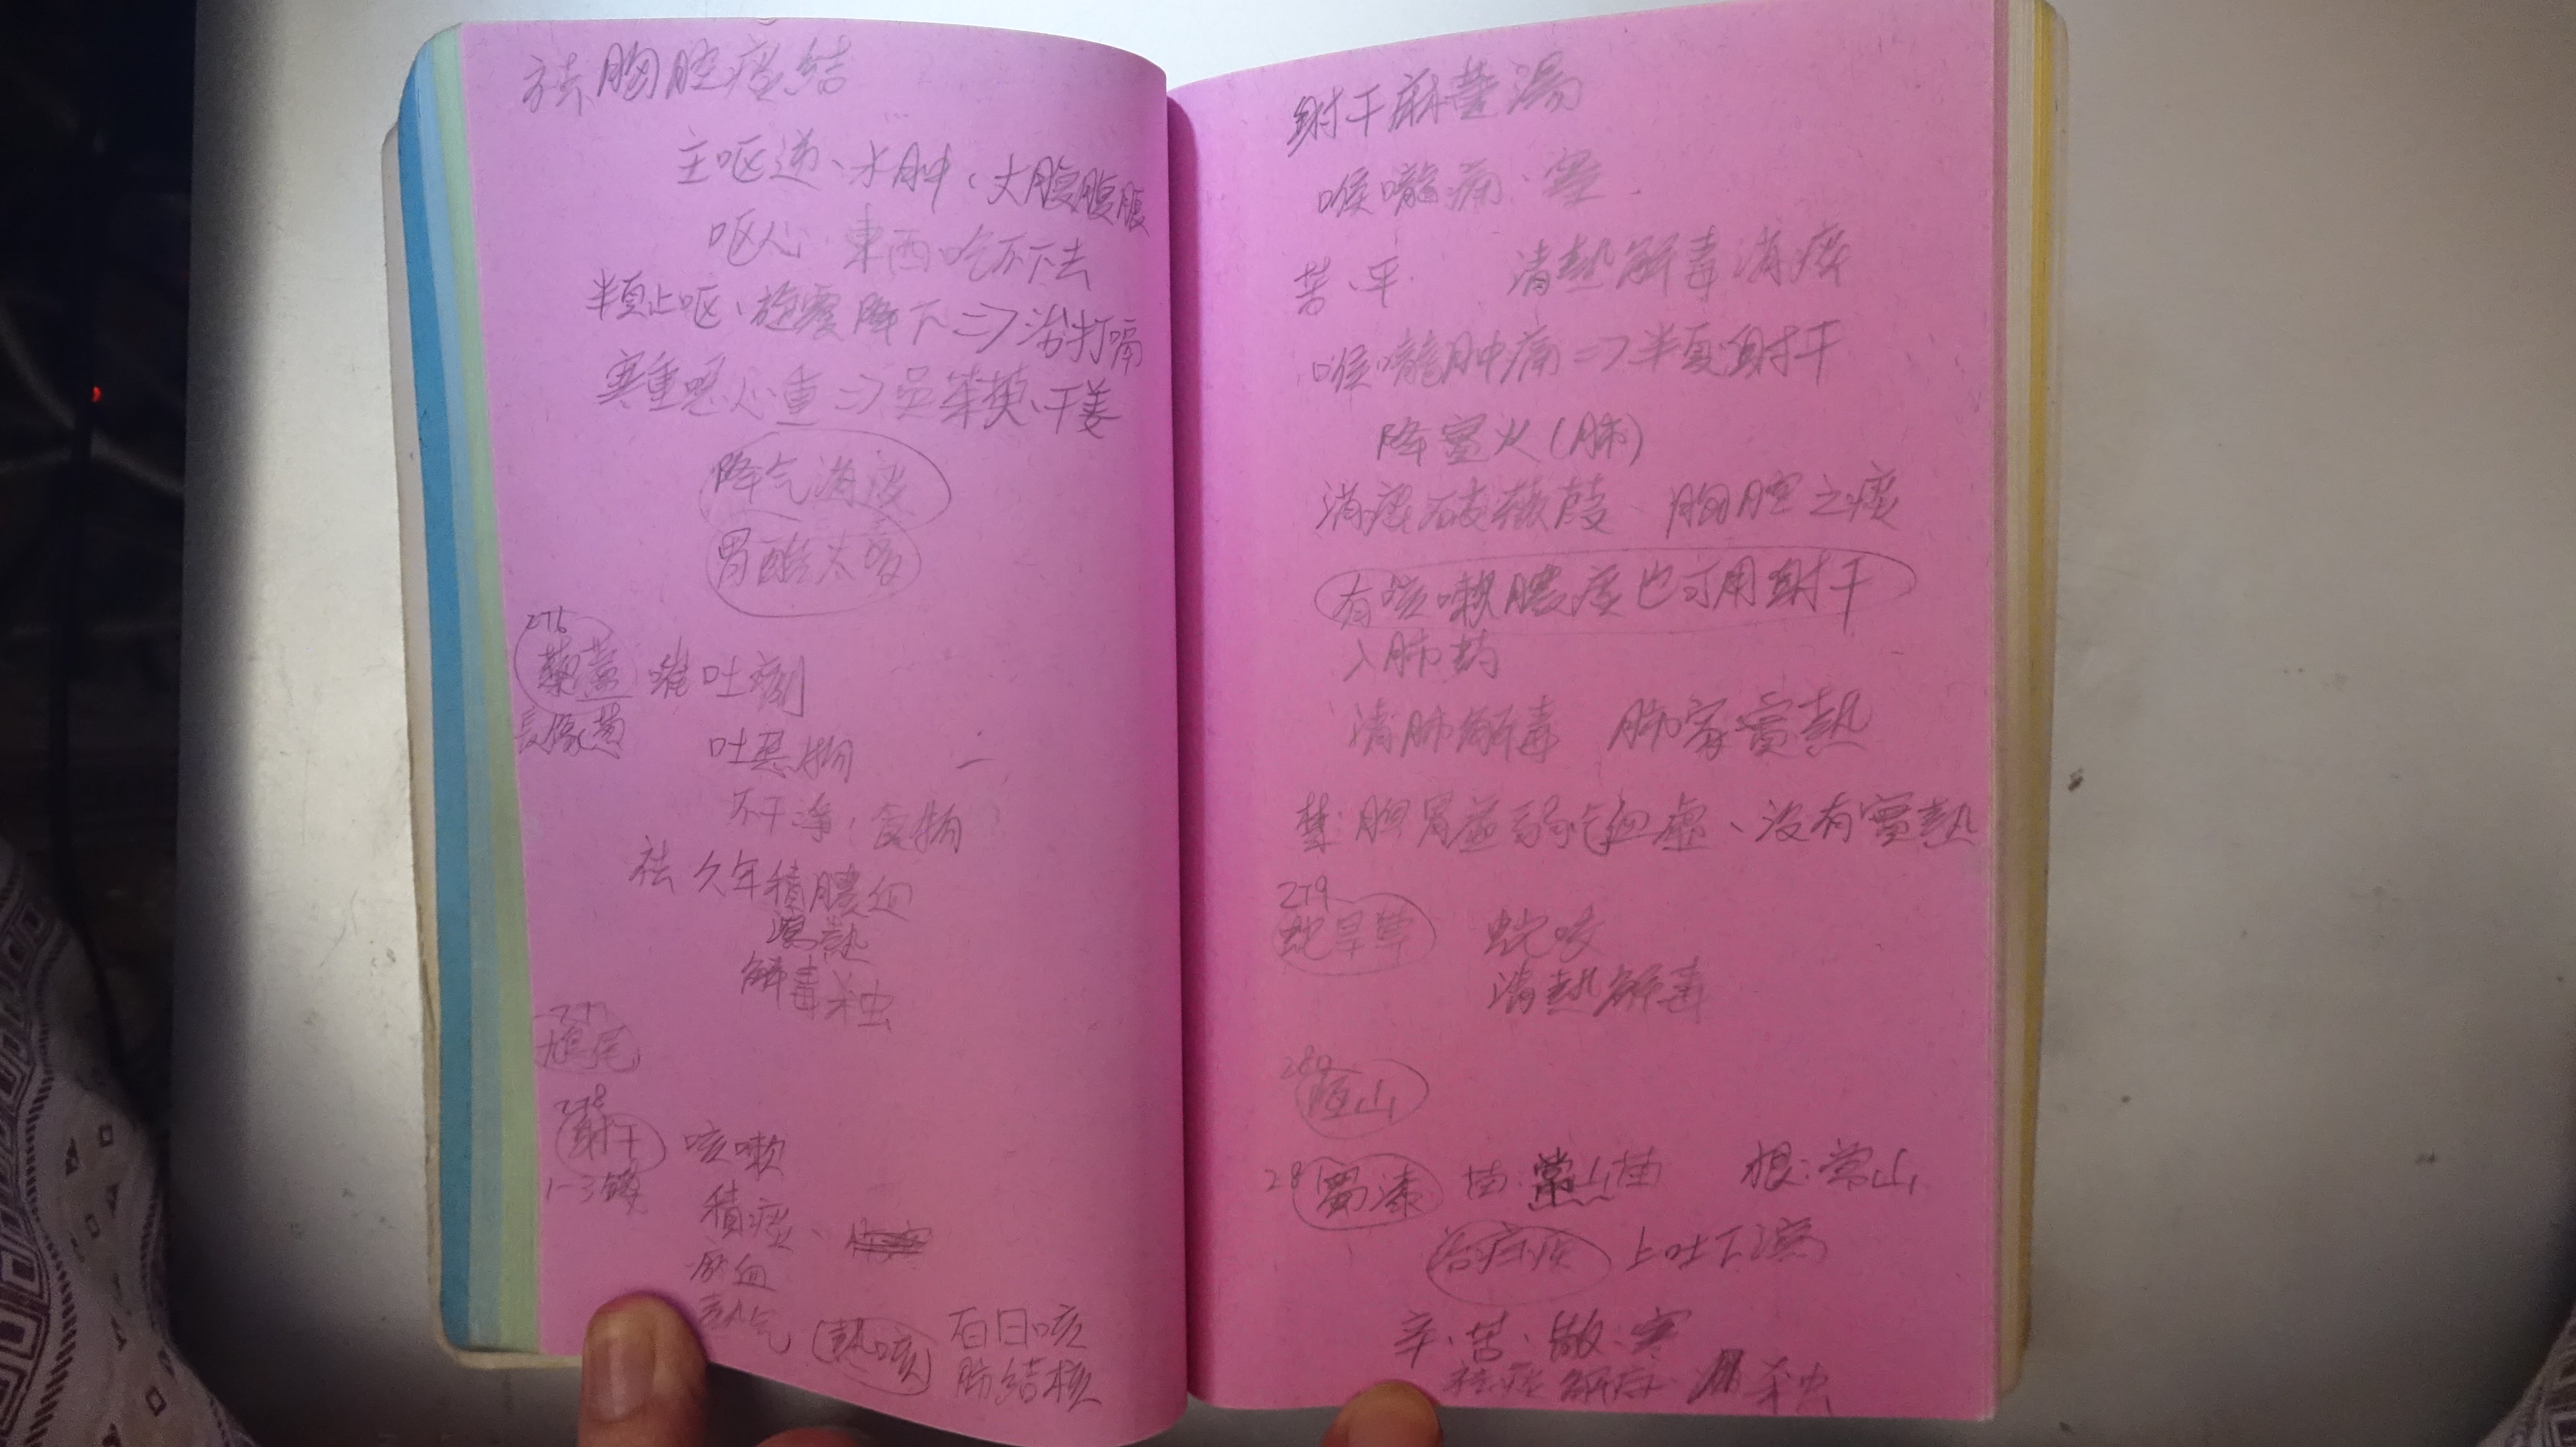 祛胸腔痰結
主呕逆、水肿、大腹腹脹
呕心 東西吃不下去
半夏止呕、旋覆降下 => 治打嗝
寒重噁心重 => 吳茱萸、干姜
降气消痰
胃酸太多
276
藜蘆 催吐劑
長像蔥
吐異物
不干净食物
祛久年積膿血
濕熱
解毒杀虫
277
鳶尾
278
射干 咳嗽
1-3錢
積痰、
瘀血
熱气 (熱咳) 百日咳
肺結核
射干麻黄湯
喉嚨痛
苦、平 清熱解毒消痰
喉嚨肿痛 => 半夏射干
降實火(肺)
消痰破癥 胸腔之痰
有咳嗽膿痰也可用射干
入肺药
清肺解毒 肺家實熱
禁:脾胃虚弱气血虛、没有實熱
279
蛇草 蛇咬
清熱解毒
280
恆山
28 蜀漆 苗:常山苗 根:常山
治疟疾 上吐下瀉
辛、苦、微、寒
祛痰 杀虫